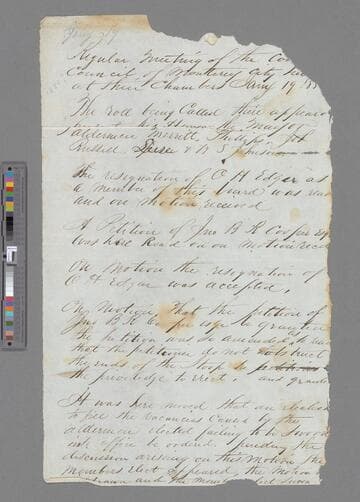 Regular Meeting of the
Council of Monterey City
at their Chambers Jany 19
The roll being Called there appeared
his Honor the Mayor
Aldermen Merritt
Russell
The resignation of C. H. Edgar as
a member of this board was read
and on motion received
A Petition of Jno B R Cooper Esq
was here Read on on Motion
On Motion the resignation of
C H Edgar was accepted.
On Motion That the petition of
Jno B R Cooper esqr be granted
the petition was so amended
that the petitioner do not obstruct
the ends of the Stoop
the priveledge to erect. and
It was here moved that an election
to fill the vacancies caused by the
aldermen elected failing to be sworn
office be ordered. pending the
discussion arising on this Motion the
members elect appeared the Motion
and the